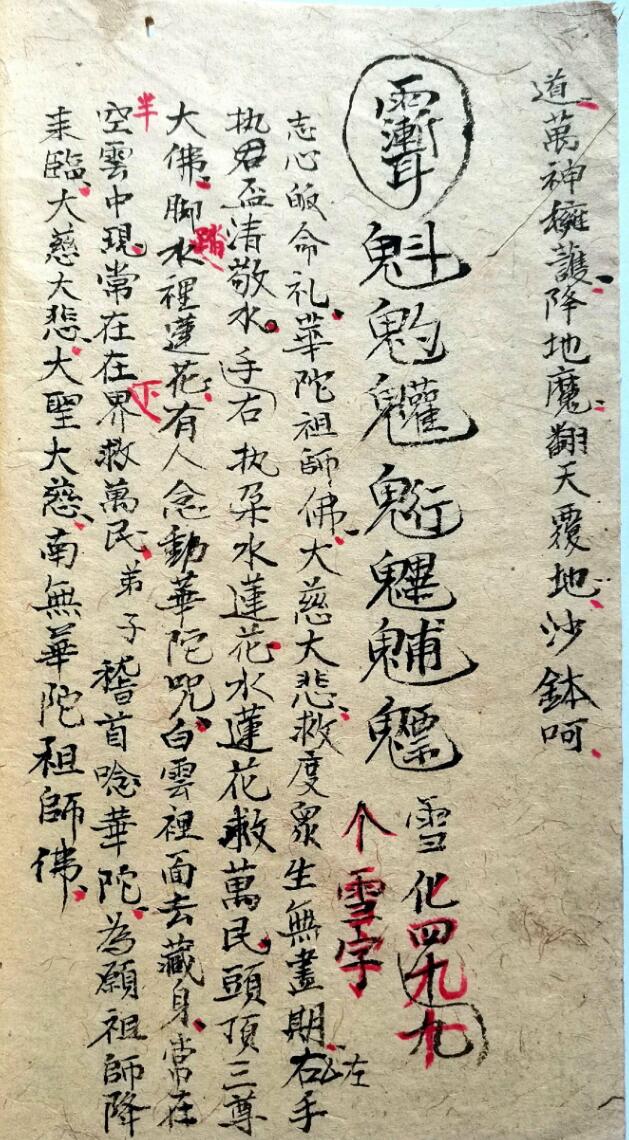 道萬神擁護降地魔翻天覆地沙鉢呵
魁𩲃䰢魓𩳐魒
雪化四九九
个雪字
志心皈命礼華陀祖師佛大慈大悲救度眾生無盡期右手
左
执君盃清敬水手右执朶水蓮花水蓮花救萬民頭頂三尊
大佛脚踏水裡蓮花有人念動華陀咒白雲裡面去藏身常在
半空雲中現常在在界下救萬民弟子稽首唸華陀為願祖師降
来臨大慈大悲大聖大慈南無華陀祖師佛